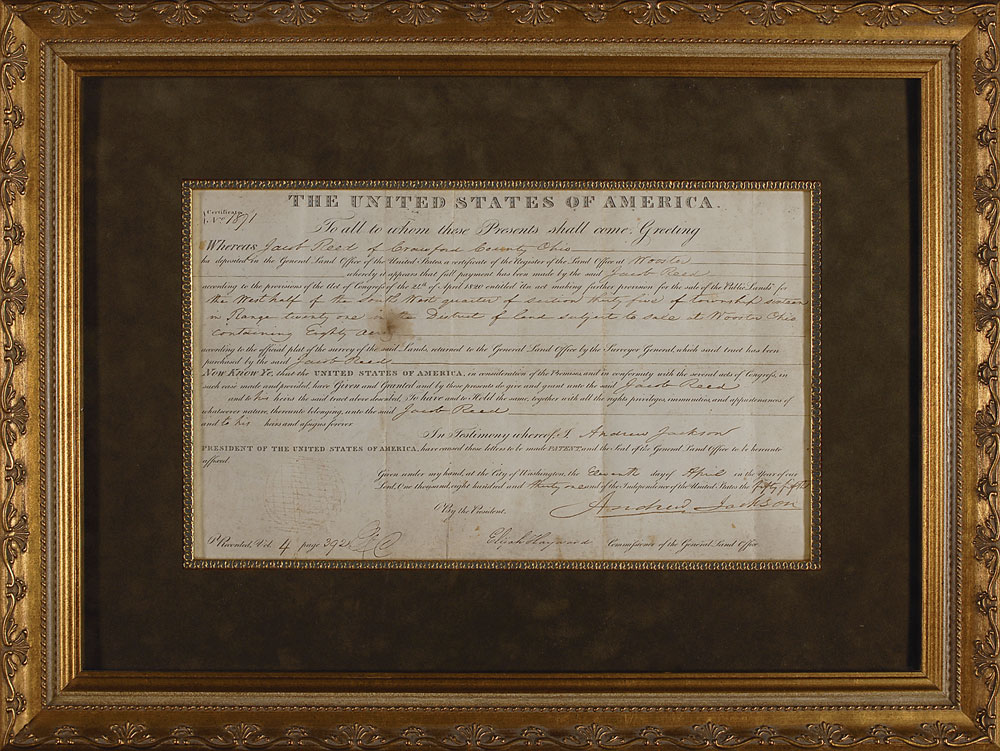 THE UNITED STATES OF AMERICA.
Certificate
No. 1871
To all to whom these Presents shall come, Greeting
Whereas Jacob Reed of Crawford County Ohio
ha deposited in the General Land Office of the United States a certificate of the Register of the Land Office at Wooster
whereby it appears that full payment has been made by the said Jacob Reed
according to the provisions of the Act of Congress of the 24th of April 1820 entitled "An act making further provision for the sale of the Public Lands" for
the West half of the South West quarter of section thirty five of township sixteen
in Range twenty one in the District of land subject to sale at Wooster Ohio
containing Eighty acres
according to the official plat of the survey of the said Lands, returned to the General Land Office by the Surveyor General, which said tract has been
purchased by the said Jacob Reed
Now Know Ye, that the UNITED STATES OF AMERICA, in consideration of the Premises, and in conformity with the several acts of Congress, in
such case made and provided, have Given and Granted and by these presents do give and grant unto the said Jacob Reed
and to his heirs the said tract above described, To have and to Hold the same, together with all the rights privileges, immunities, and appurtenances of
whatsoever nature, thereunto belonging, unto the said Jacob Reed
and to his heirs and assigns forever
In Testimony whereof, I Andrew Jackson
PRESIDENT OF THE UNITED STATES OF AMERICA, have caused these letters to be made PATENT, and the Seal of the General Land Office to be hereunto
affixed.
Given under my hand, at the City of Washington, the day of April in the Year of our
Lord, One thousand, eight hundred and thirty one and of the Independence of the United States the fifty fifth
By the President. Andrew Jackson
Recorded, Vol. 4 page 392 Elijah Hayward Commissioner of the General Land Office